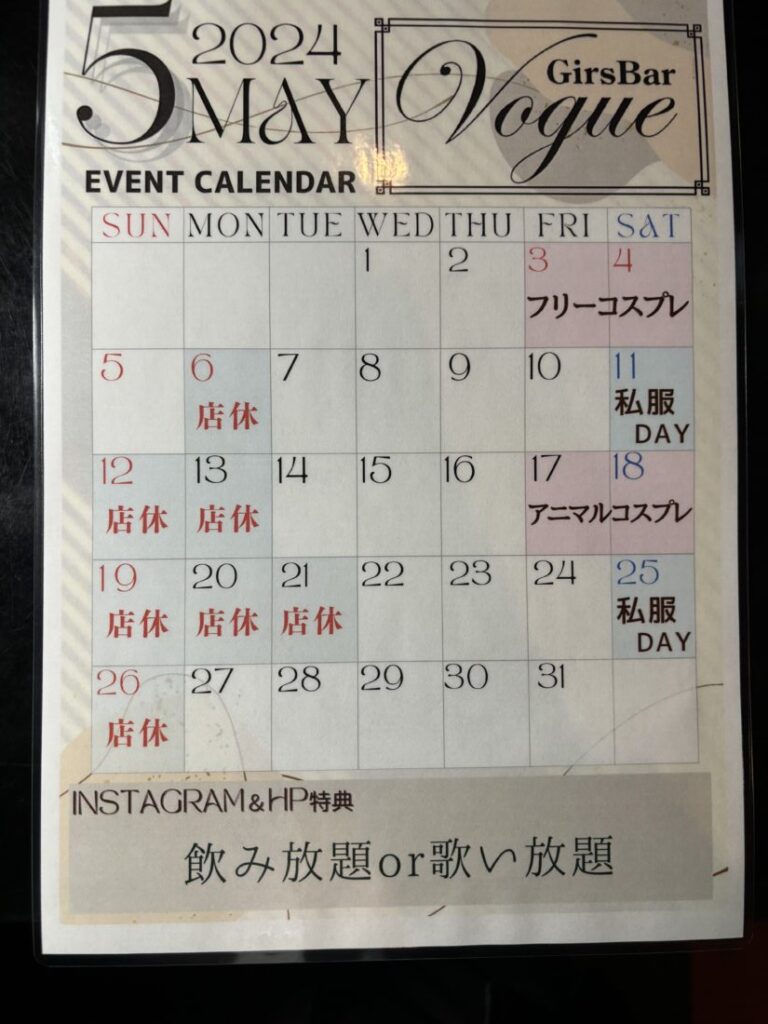 5
2024
MAY
EVENT CALENDAR
GirsBar
Vogue
SUN MON TUE WED THU FRI SAT
1 2 3 4
フリーコスプレ
5 6 7 8 9 10 11
店休 私服
DAY
12 13 14 15 16 17 18
店休 店休 アニマルコスプレ
19 20 21 22 23 24 25
店休 店休 店休 私服
DAY
26 27 28 29 30 31
店休
INSTAGRAM&HP特典
飲み放題or歌い放題